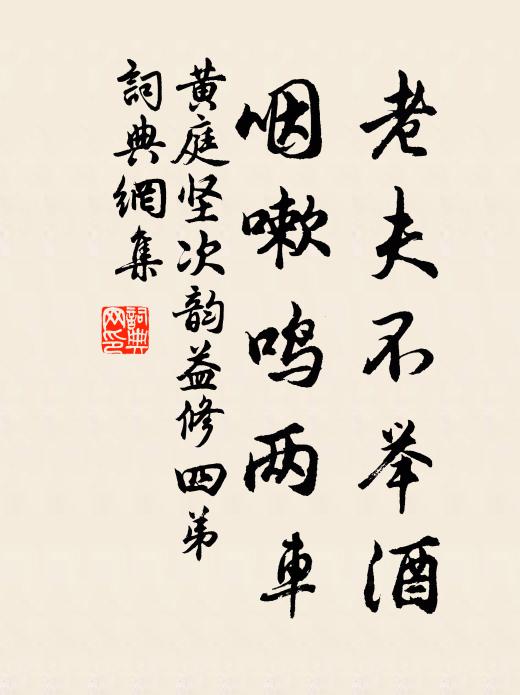 老夫不举酒
咽嗽鸣两車
黄庭坚次韵益修四弟
詞典網集
詞典网印